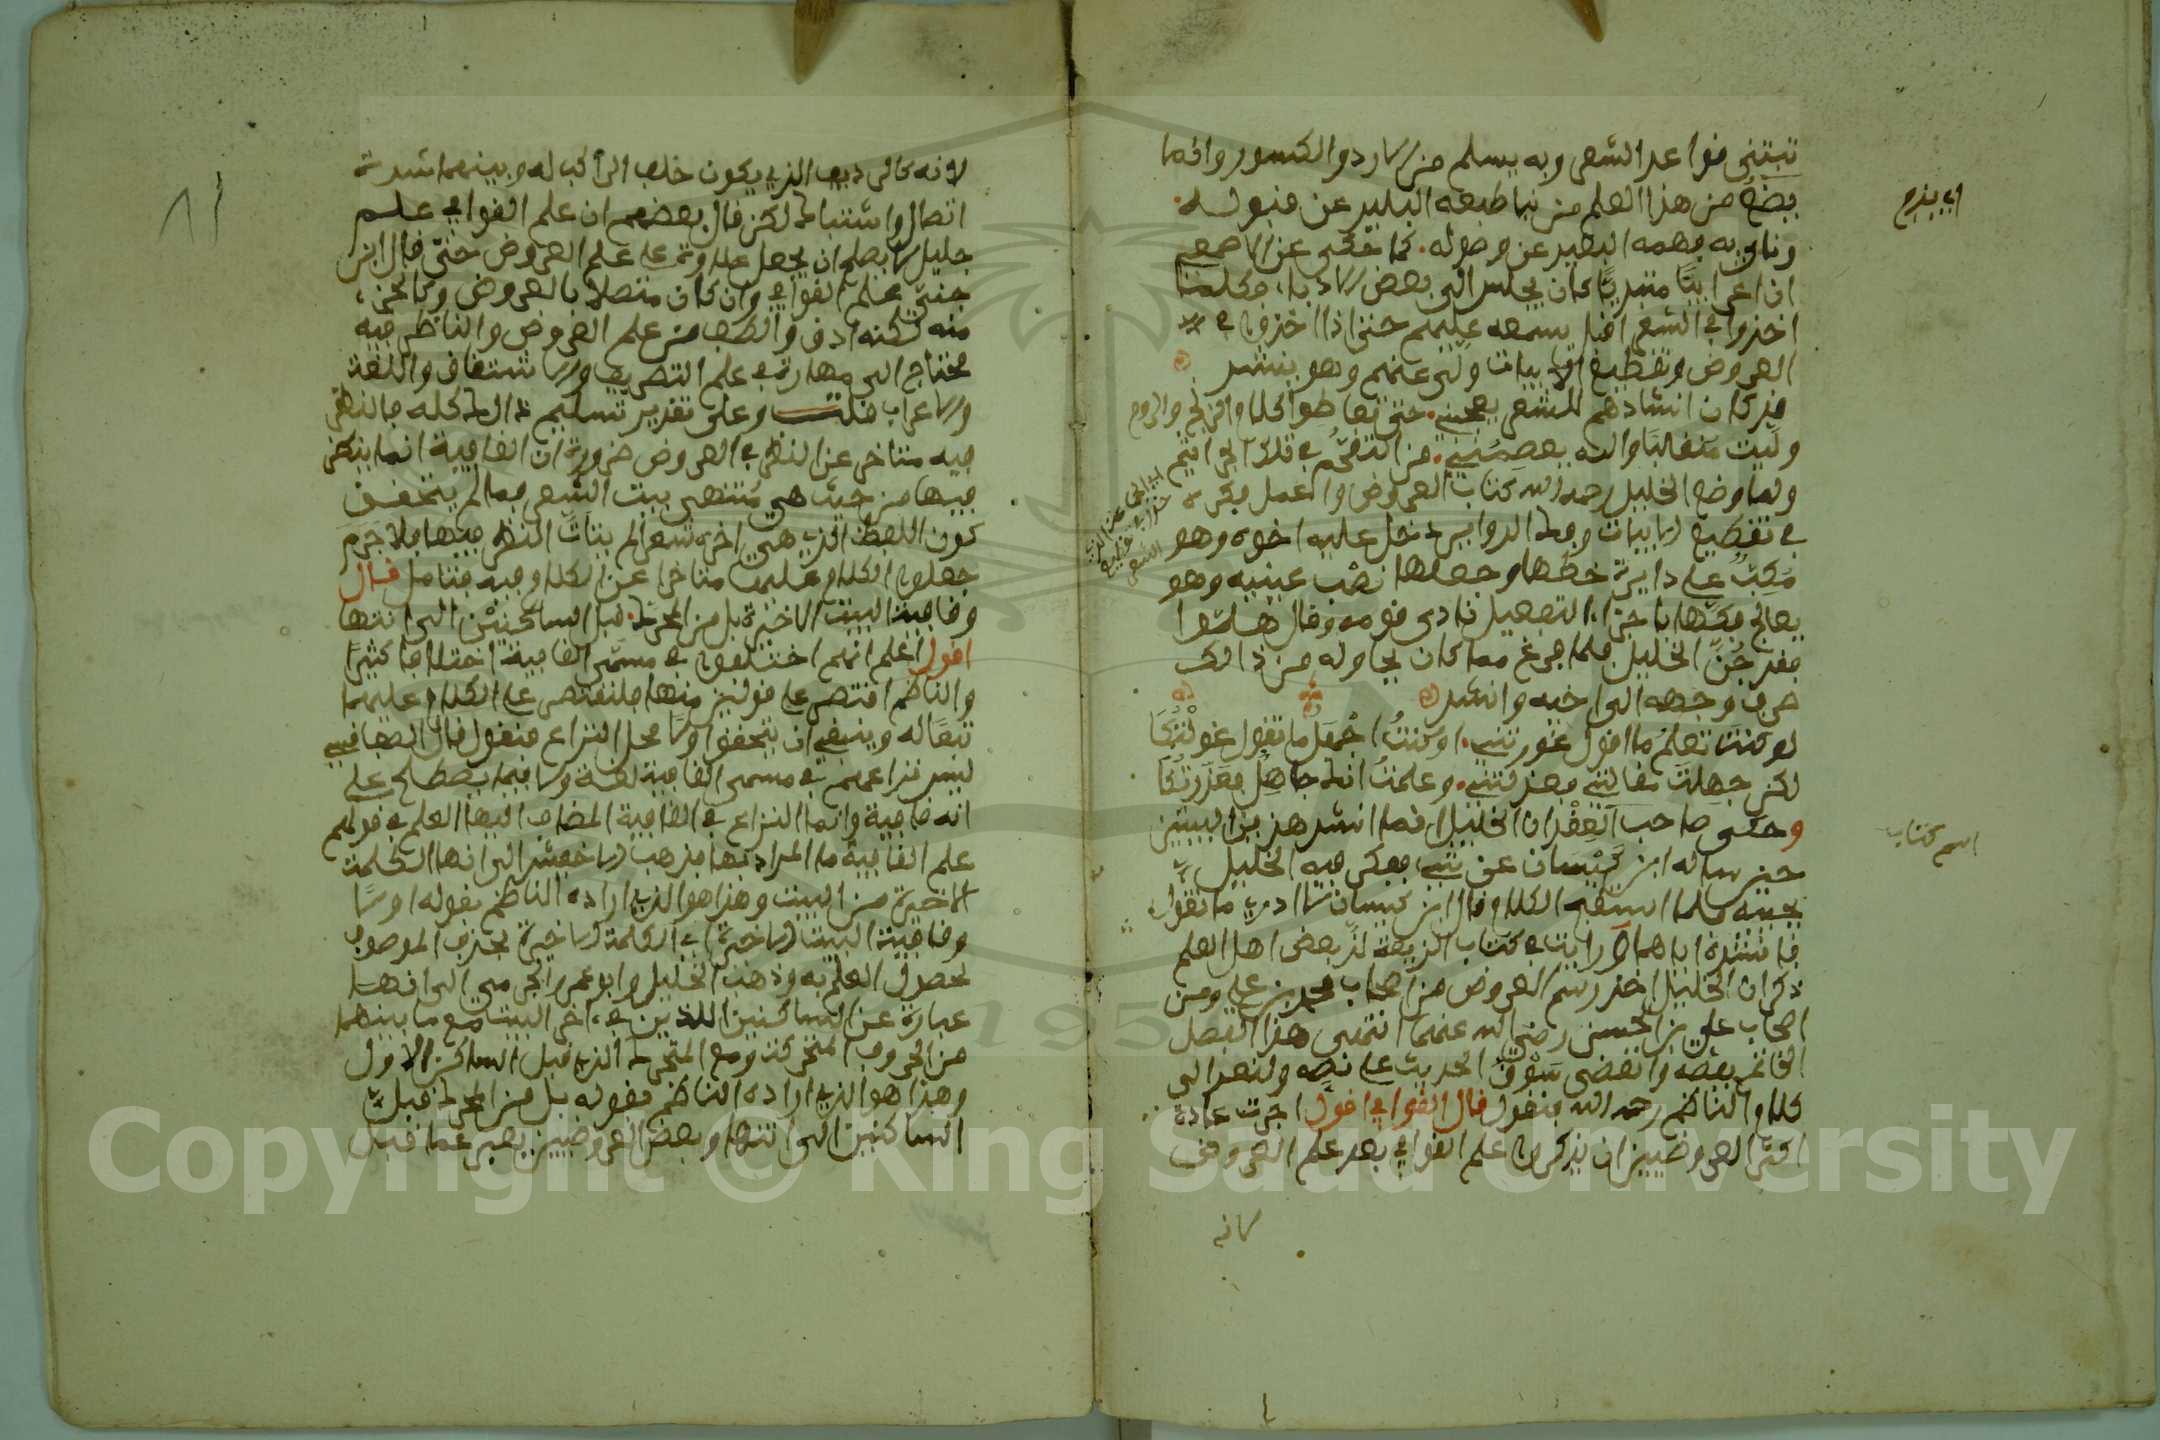 تبتنى قواعد الشعر وبه يسلم من الاود والكسور وانما
يضع من هذا العلم من نبا طبعه البليد عن قبوله
وناى به فهمه البعيد عن وصوله كما حكى عن الاصمعي
ان اعرابيا مبتديا كان يجلس الى بعض الادبا فكلما
اخذوا في الشعر اقبل بسمعه عليهم حتى اذا اخذوا في
العروض وتقطيع الابيات ولى عنهم وهو ينشد
قد كان انشادهم للشعر يعجبني حتى تعاطوا كلام الزنج والروم
وليت منقلبا والله يعصمني من التقحم في تلك الجراثيم
ولما وضع الخليل رحمه الله كتاب العروض واعمل فكره
في تقطيع الابيات وفك الدواير دخل عليه اخوه وهو
مكب على دايرة خطها وجعلها نصب عينيه وهو
يعالج فكها باجزاء التفعيل نادى قومه وقال هلموا
فقد جن الخليل فلما فرغ مما كان يحاوله من ذالك
صرف وجهه الى اخيه وانشد
لو كنت تعلم ما اقول عذرتني او كنت اجهل ما تقول عذلتكا
لكن جهلت مقالتي فعذلتني وعلمت انك جاهل فعذرتكا
وحكى صاحب العقد ان الخليل انما انشد هذين البيتين
حين ساله ابن كيسان عن شيء ففكر فيه الخليل
يجيبه فلما استفتح الكلام قال ابن كيسان لا ادري ما تقول
فانشده اياهما ورايت في كتاب الزينة لبعض اهل العلم
ذكر ان الخليل اخذ رسم العروض من اصحاب محمد بن علي ومن
اصحاب علي بن الحسين رضي الله عنهم انتهى هذا الفصل
الخاتم بفصه وانقضى سوق الحديث على نصه ولنعد الى
كلام الناظم رحمه الله فنقول قال القوافي اقول اجرت عادة
اكثر العروضيين ان يذكروا علم القوافي بعد علم العروض
لانه
اي يذم
اسم كتاب
لانه كالرديف الذي يكون خلف الراكب له وبينهما شدة
اتصال واشتباك لكن قال بعضهم ان علم القوافي علم
جليل لا يصلح ان يجعل علاوة على علم العروض حتى قال ابن
جني علم القوافي وان كان متصلا بالعروض وكالجزء
منه لكنه ادق والطف من علم العروض والناظر فيه
محتاج الى مهارة في علم التصريف والاشتقاق واللغة
والاعراب قلت وعلى تقدير تسليم ذالك كله فالنظر
فيه متاخر عن النظر في العروض ضرورة ان القافية انما ينظر
فيها من حيث هي منتهى بيت الشعر فما لم يتحقق
كون اللفظ الذي هي اخره شعرا لم يتات النظر فيها فلا جرم
جعلوا الكلام عليها متاخرا عن الكلام فيه فتامل قال
وقافية البيت الاخيرة بل من المحرك قبل الساكنين الى انتها
اقول اعلم انهم اختلفوا في مسمى القافية اختلافا كثيرا
والناظم اقتصر على قولين منها فلنقتصر على الكلام عليهما
تبعا له وينبغي ان يتحقق اولا محل النزاع فنقول قال الصفاقسي
ليس نزاعهم في مسمى القافية لغة ولا فيما يصطلح على
انه قافية وانما النزاع في القافية المضاف اليها العلم في قولهم
علم القافية ما المراد بها فذهب الاخفش الى انها الكلمة
الاخيرة من البيت وهذا هو الذي اراده الناظم بقوله اولا
وقافية البيت الاخيرة اي الكلمة الاخيرة بحذف الموصوف
لحصول العلم به وذهب الخليل وابو عمر الجرمي الى انها
عبارة عن الساكنين اللذين في اخر البيت مع ما بينهما
من الحروف المتحركة ومع المتحرك الذي قبل الساكن الاول
وهذا هو الذي اراده الناظم بقوله بل من المحرك قبل
الساكنين الى انتها وبعض العروضيين يعبر عما قبل
Copyright © King Saud University
1957